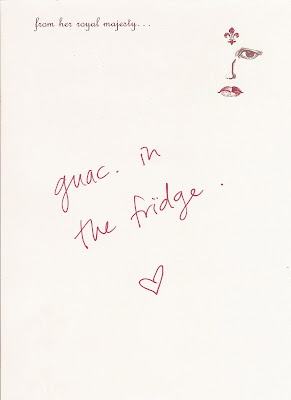 from her royal majesty...
guac. in
the fridge.